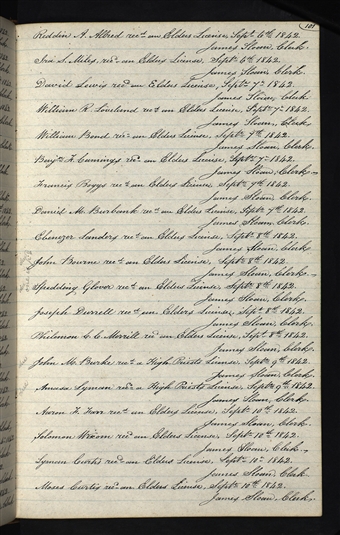 101
Reddin A. Allred recd. an Elders License, Sept. 6th. 1842.
James Sloan, Clerk.
Ira S. Miles, recd. an Elders License, Sept. 6th. 1842.
James Sloan, Clerk.
David Lewis recd. an Elders License, Sept. 7th. 1842.
James Sloan, Clerk.
William R. recd. an Elders License, Sept. 7th. 1842.
James Sloan, Clerk.
William Bond recd. an Elders License, Sept. 7th. 1842.
James Sloan, Clerk.
Benjn. F. Cumings recd. an Elders License, Sept. 7th. 1842.
James Sloan, Clerk.
Francis Boggs recd. an Elders License, Sept. 7th. 1842.
James Sloan, Clerk.
Daniel M. Burbank recd. an Elders License, Sept. 7th. 1842.
James Sloan, Clerk.
Ebenezer Landers recd. an Elders License, Sept. 8th. 1842.
James Sloan, Clerk.
John Bourne recd. an Elders License, Sept. 8th. 1842.
James Sloan, Clerk.
Glover recd. an Elders License, Sept. 8th. 1842.
James Sloan, Clerk.
Joseph Durrell recd. an Elders License, Sept. 8th. 1842.
James Sloan, Clerk.
Philemon C. Merrill recd. an Elders License, Sept. 8th. 1842.
James Sloan, Clerk.
John M. Burke recd. a High Priests License, Sept. 9th. 1842.
James Sloan, Clerk.
Amasa Lyman recd. a High Priests License, Sept. 9th. 1842.
James Sloan, Clerk.
Aaron F. Farr recd. an Elders License, Sept. 10th. 1842.
James Sloan, Clerk.
Solomon Wixom recd. an Elders License, Sept. 10th. 1842.
James Sloan, Clerk.
Lyman Curtis recd. an Elders License, Sept. 10th. 1842.
James Sloan, Clerk.
Moses Curtis recd. an Elders License, Sept. 10th. 1842.
James Sloan, Clerk.